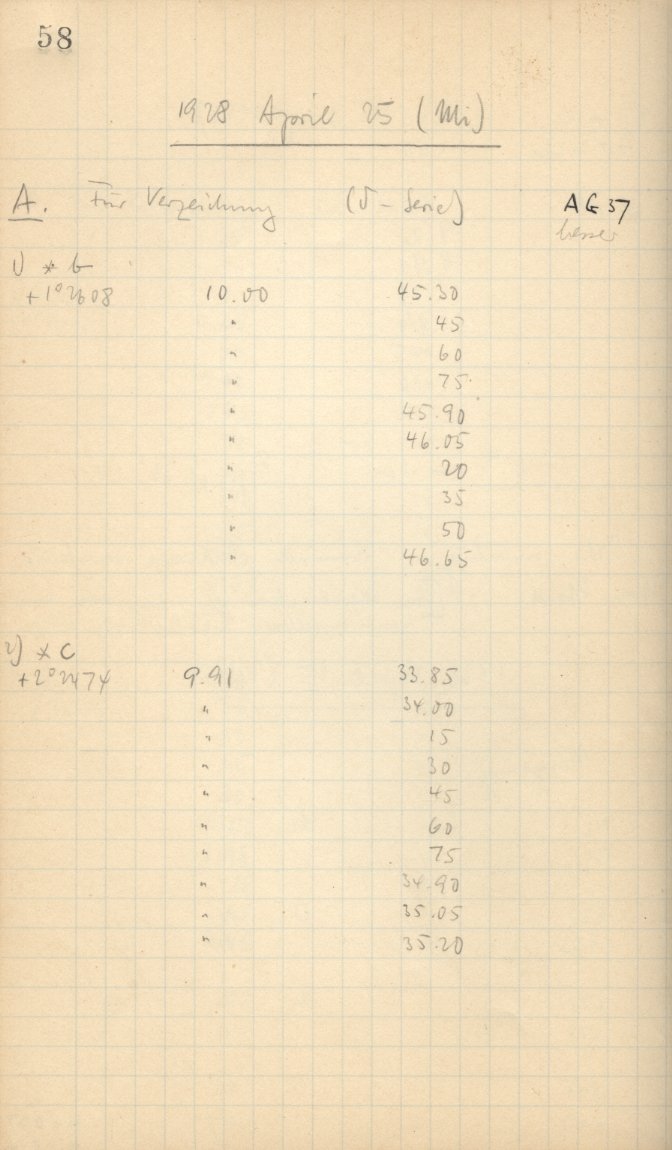 58
1928 April 25 (Mi)
A. Für Verzeichnung (δ - Serie) AG 37
besser
1) * b
+1° 2608 10.00 45.30
" 45
" 60
" 75
" 45.90
" 46.05
" 20
" 35
" 50
" 46.65
2) * c
+2° 2474 9.91 33.85
" 34.00
" 15
" 30
" 45
" 60
" 75
" 34.90
" 35.05
" 35.20